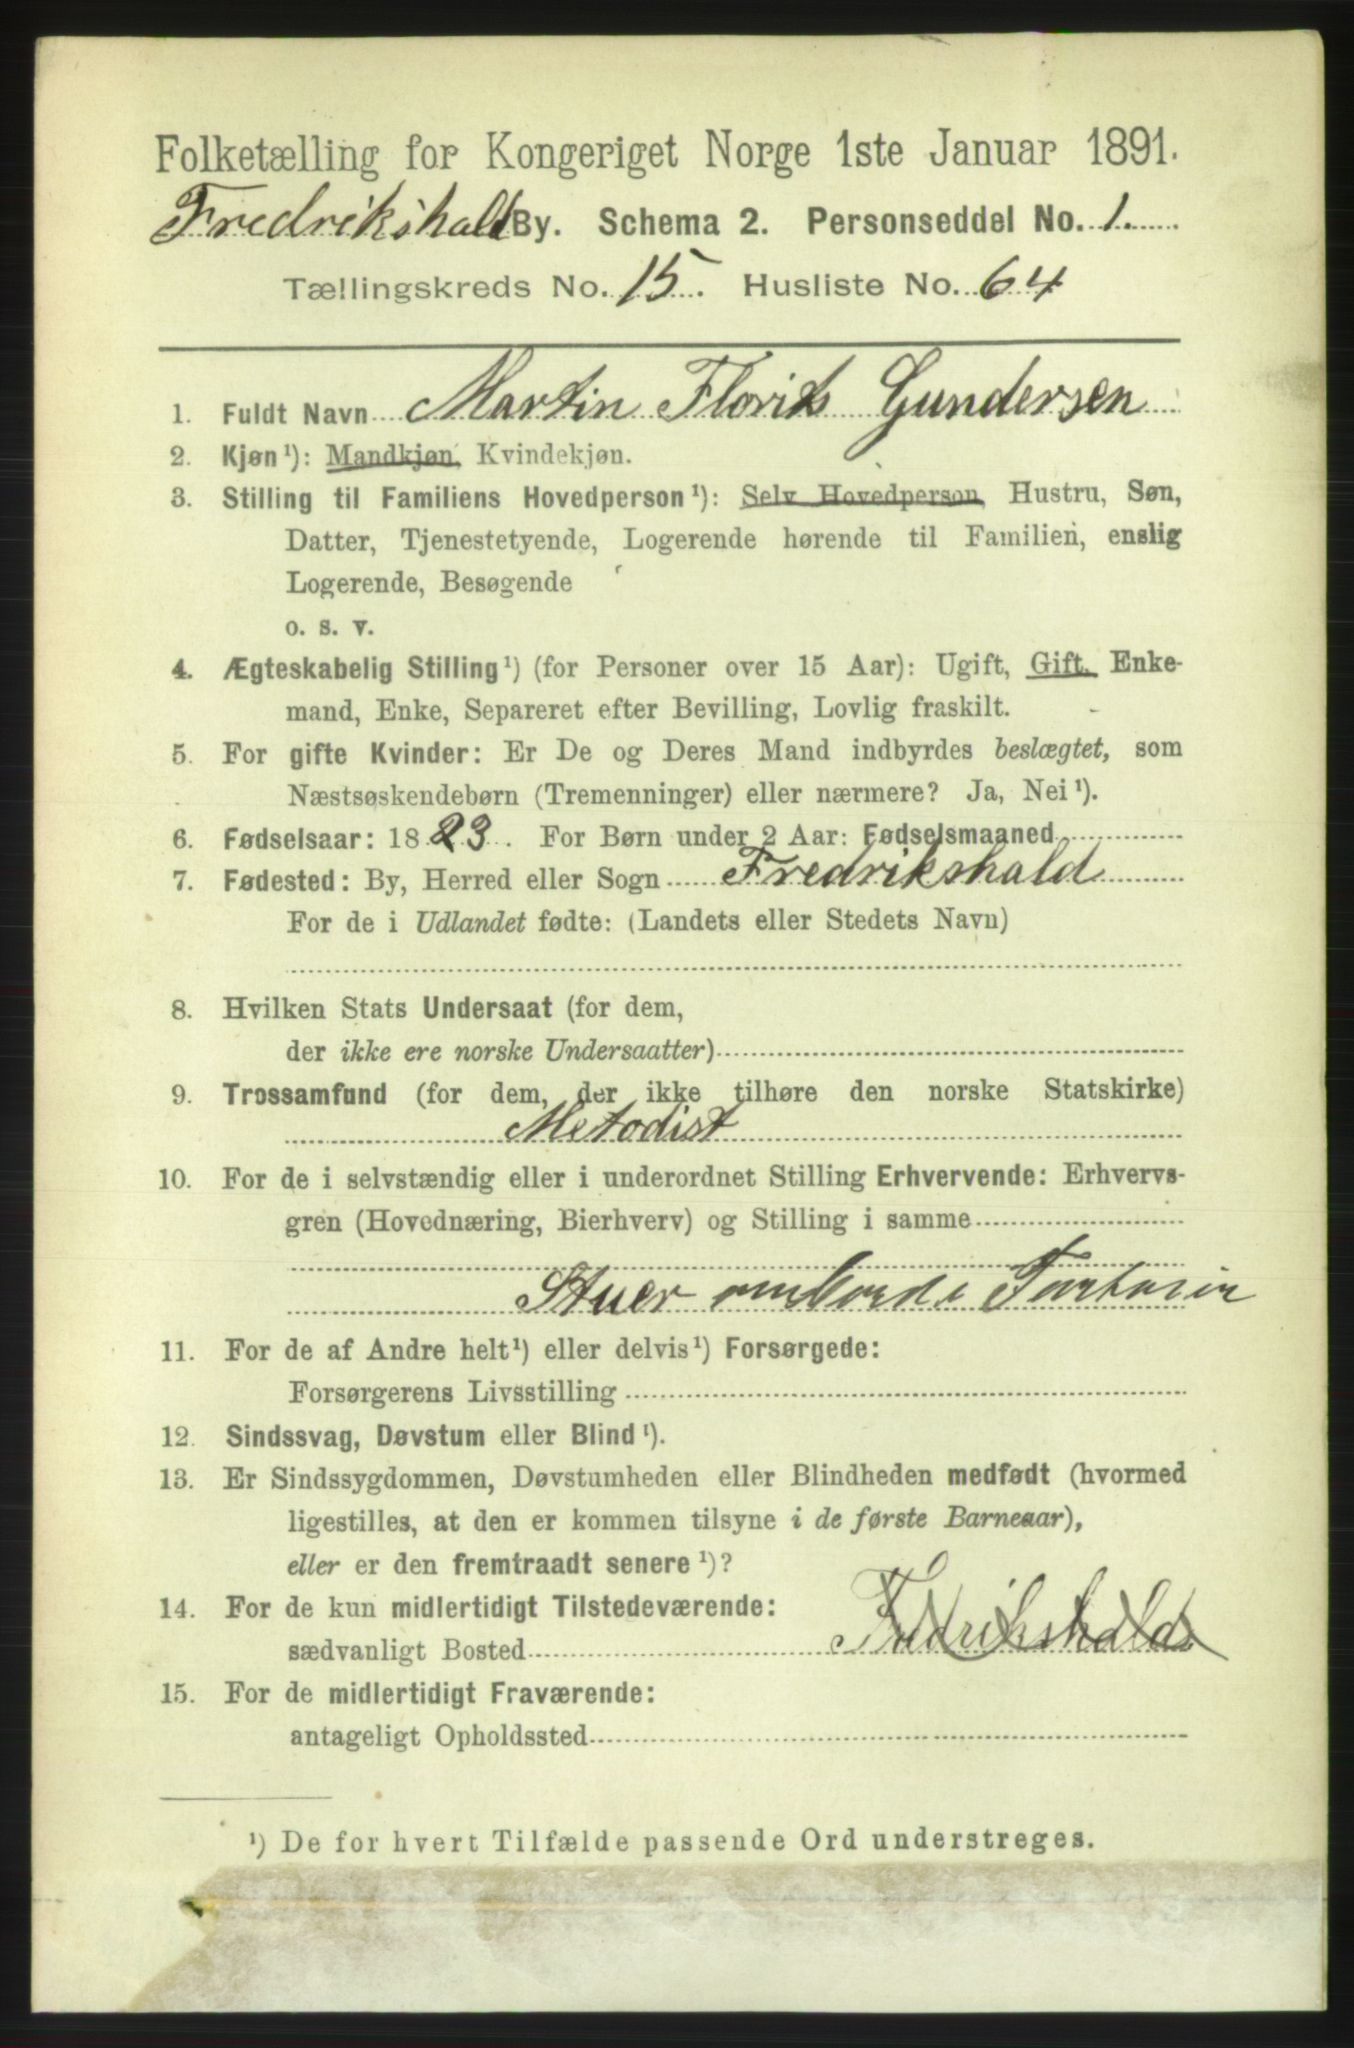 Folketælling for Kongeriget Norge 1ste Januar 1891.
Fredrikshald By. Schema 2. Personseddel No. 1.
Tællingskreds No. 15. Husliste No. 64
1. Fuldt Navn Martin Florits Gundersen
2. Kjøn ¹): Mandkjøn, Kvindekjøn.
3. Stilling til Familiens Hovedperson ¹): Selv Hovedperson, Hustru, Søn,
Datter, Tjenestetyende, Logerende hørende til Familien, enslig
Logerende, Besøgende
o. s. v.
4. Ægteskabelig Stilling ¹) (for Personer over 15 Aar): Ugift, Gift, Enke-
mand, Enke, Separeret efter Bevilling, Lovlig fraskilt.
5. For gifte Kvinder: Er De og Deres Mand indbyrdes beslægtet, som
Næstsøskendebørn (Tremenninger) eller nærmere? Ja, Nei ¹).
6. Fødselsaar: 1823. For Børn under 2 Aar: Fødselsmaaned
7. Fødested: By, Herred eller Sogn Fredrikshald
For de i Udlandet fødte: (Landets eller Stedets Navn)
8. Hvilken Stats Undersaat (for dem,
der ikke ere norske Undersaatter)
9. Trossamfund (for dem, der ikke tilhøre den norske Statskirke)
Metodist
10. For de i selvstændig eller i underordnet Stilling Erhvervende: Erhvervs-
gren (Hovednæring, Bierhverv) og Stilling i samme
Stuer omborde i
11. For de af Andre helt ¹) eller delvis ¹) Forsørgede:
Forsørgerens Livsstilling
12. Sindssvag, Døvstum eller Blind ¹).
13. Er Sindssygdommen, Døvstumheden eller Blindheden medfødt (hvormed
ligestilles, at den er kommen tilsyne i de første Barneaar),
eller er den fremtraadt senere ¹)?
14. For de kun midlertidigt Tilstedeværende:
sædvanligt Bosted Fredrikshald
15. For de midlertidigt Fraværende:
antageligt Opholdssted
¹) De for hvert Tilfælde passende Ord understreges.